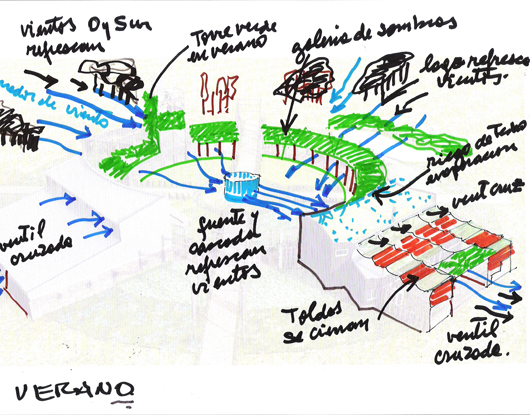 vientos O y Sur
refrescan
Torre verde
en verano
galeria de sombras
lago refresca
vientos.
nedor de viento
riego de techo
evaporacion
vent cruz
ventil
cruzada
fuente y
cascada
refrescan
vientos
Toldos
se cierran
ventil
cruzada.
VERANO